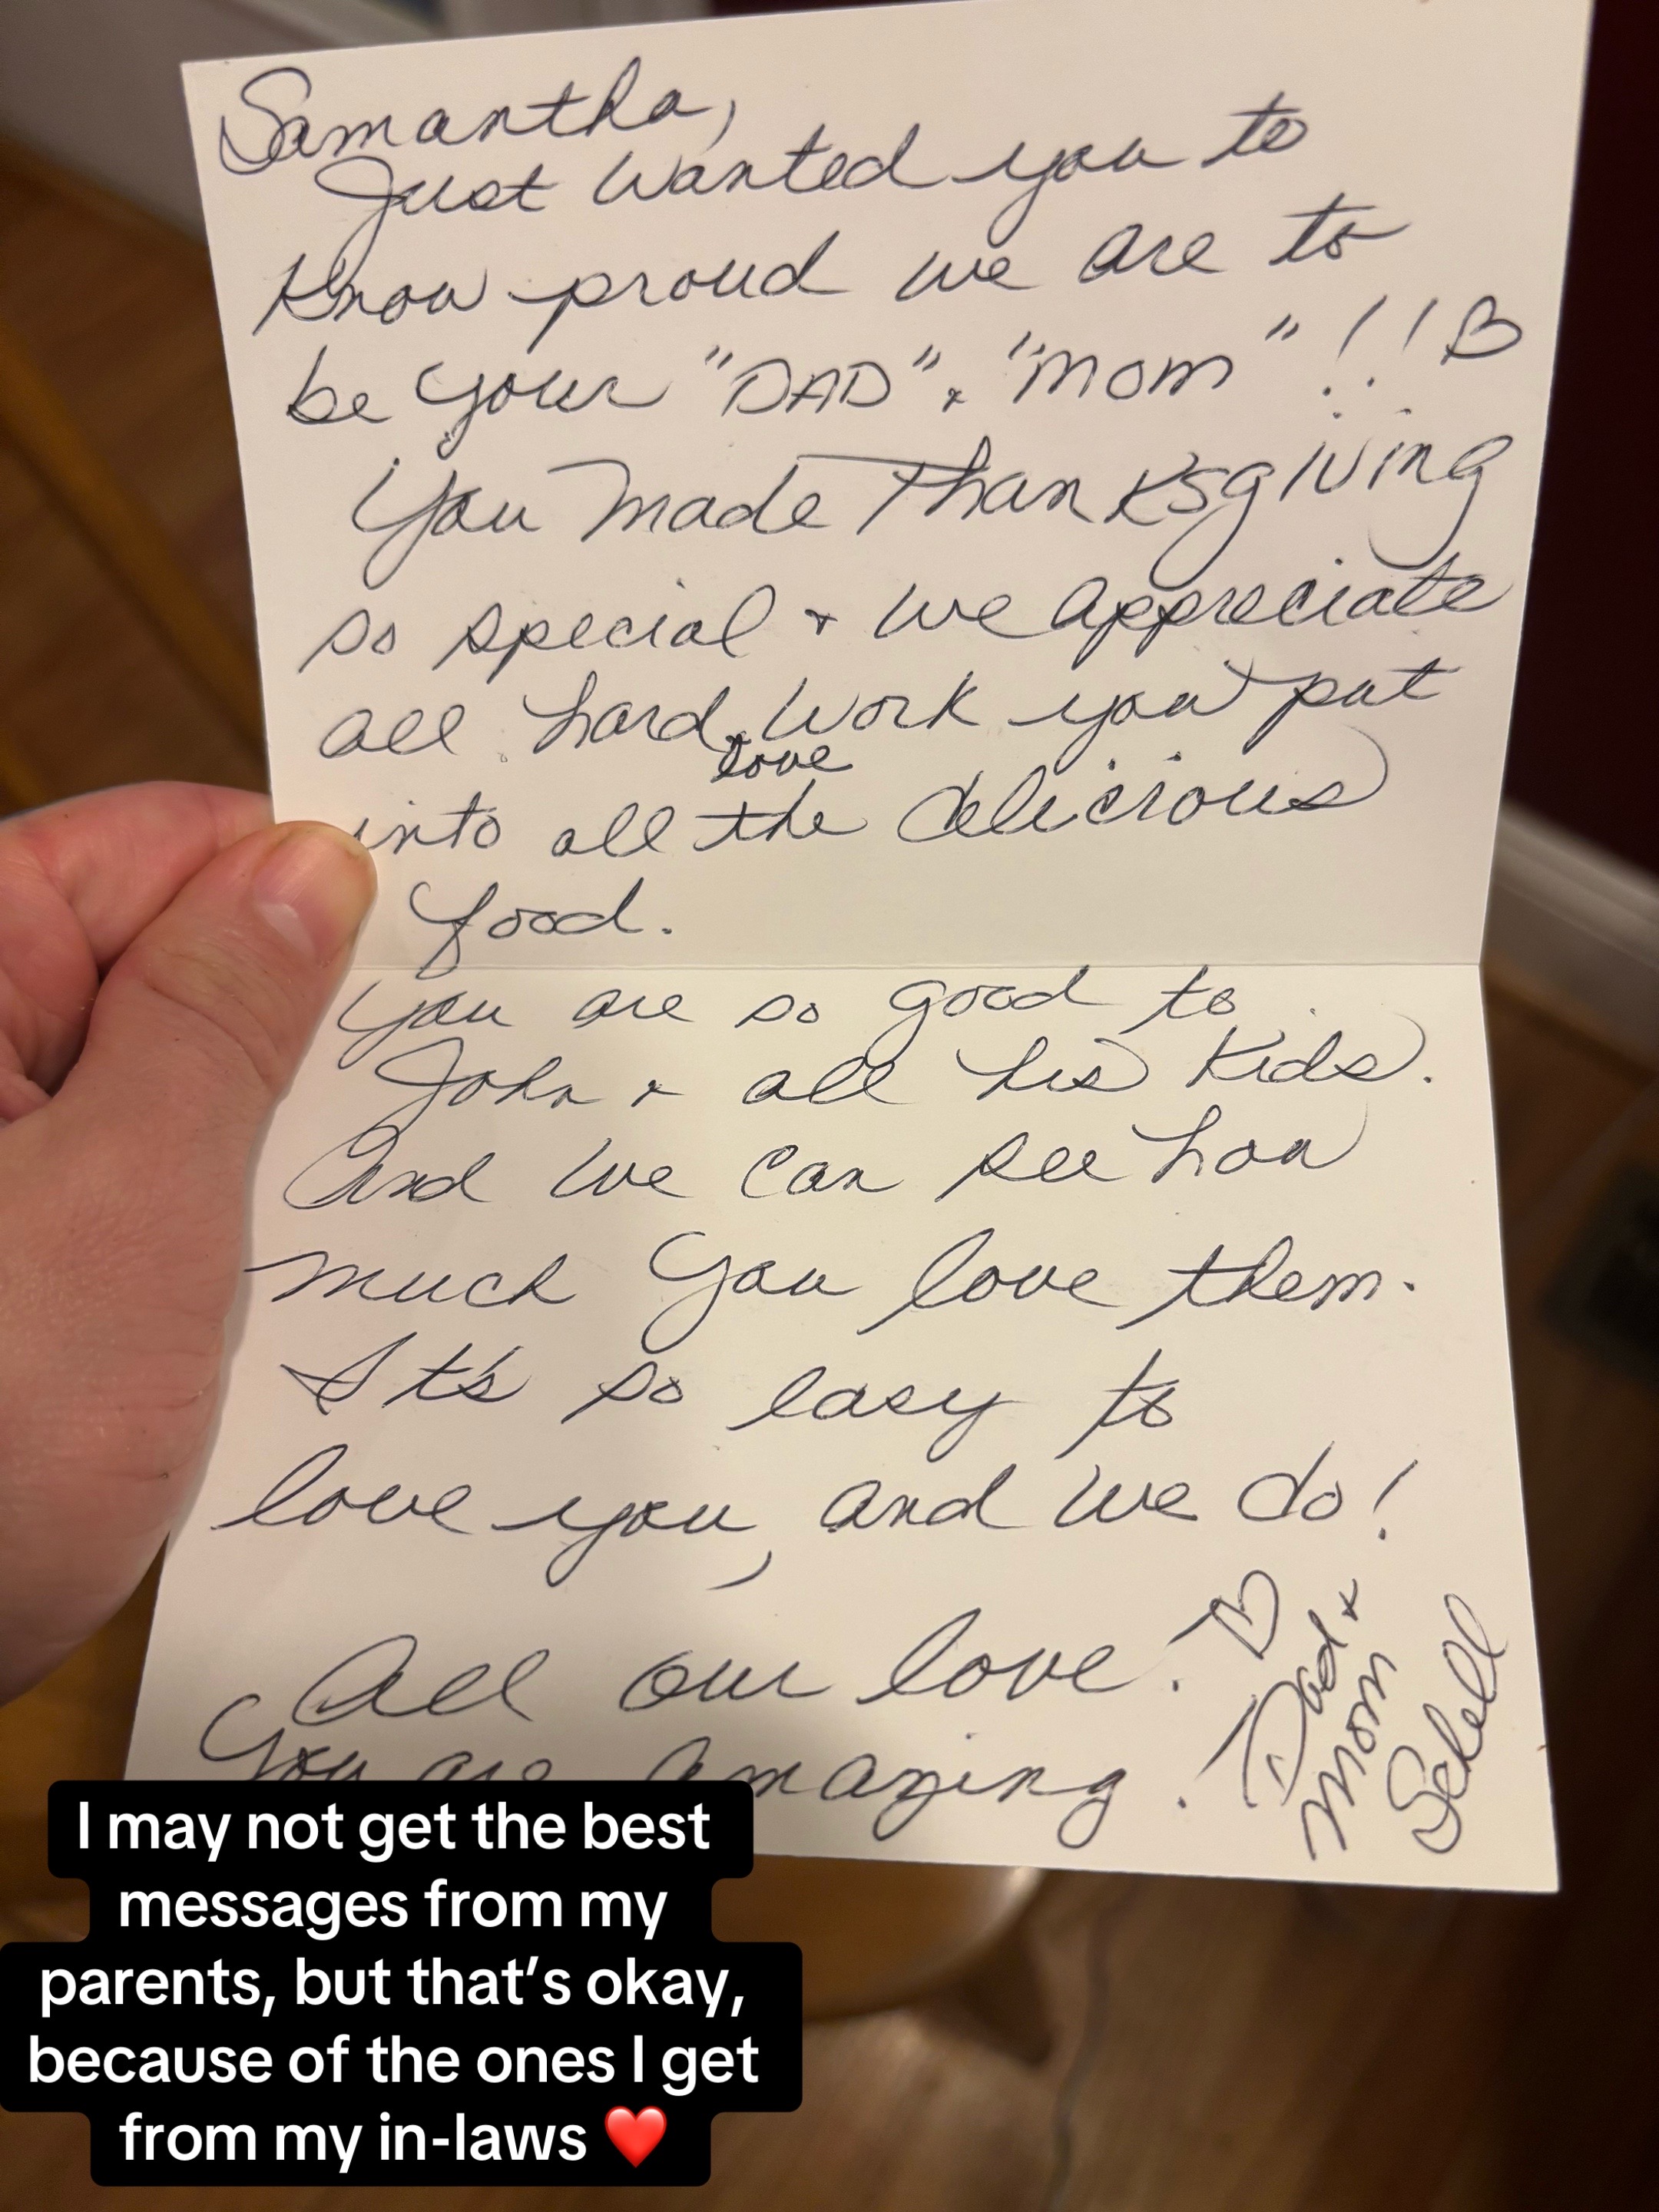 Samantha,
Just wanted you to
know proud we are to
be your "DAD" & "Mom"!! ♡
You made Thanksgiving
so special & we appreciate
all hard work you put
& love
into all the delicious
food.
You are so good to
John & all his kids.
And we can see how
much you love them.
It's so easy to
love you, and we do!
All our love! ♡
You are amazing!
Dad &
Mom
Schell
I may not get the best
messages from my
parents, but that's okay,
because of the ones I get
from my in-laws ❤️